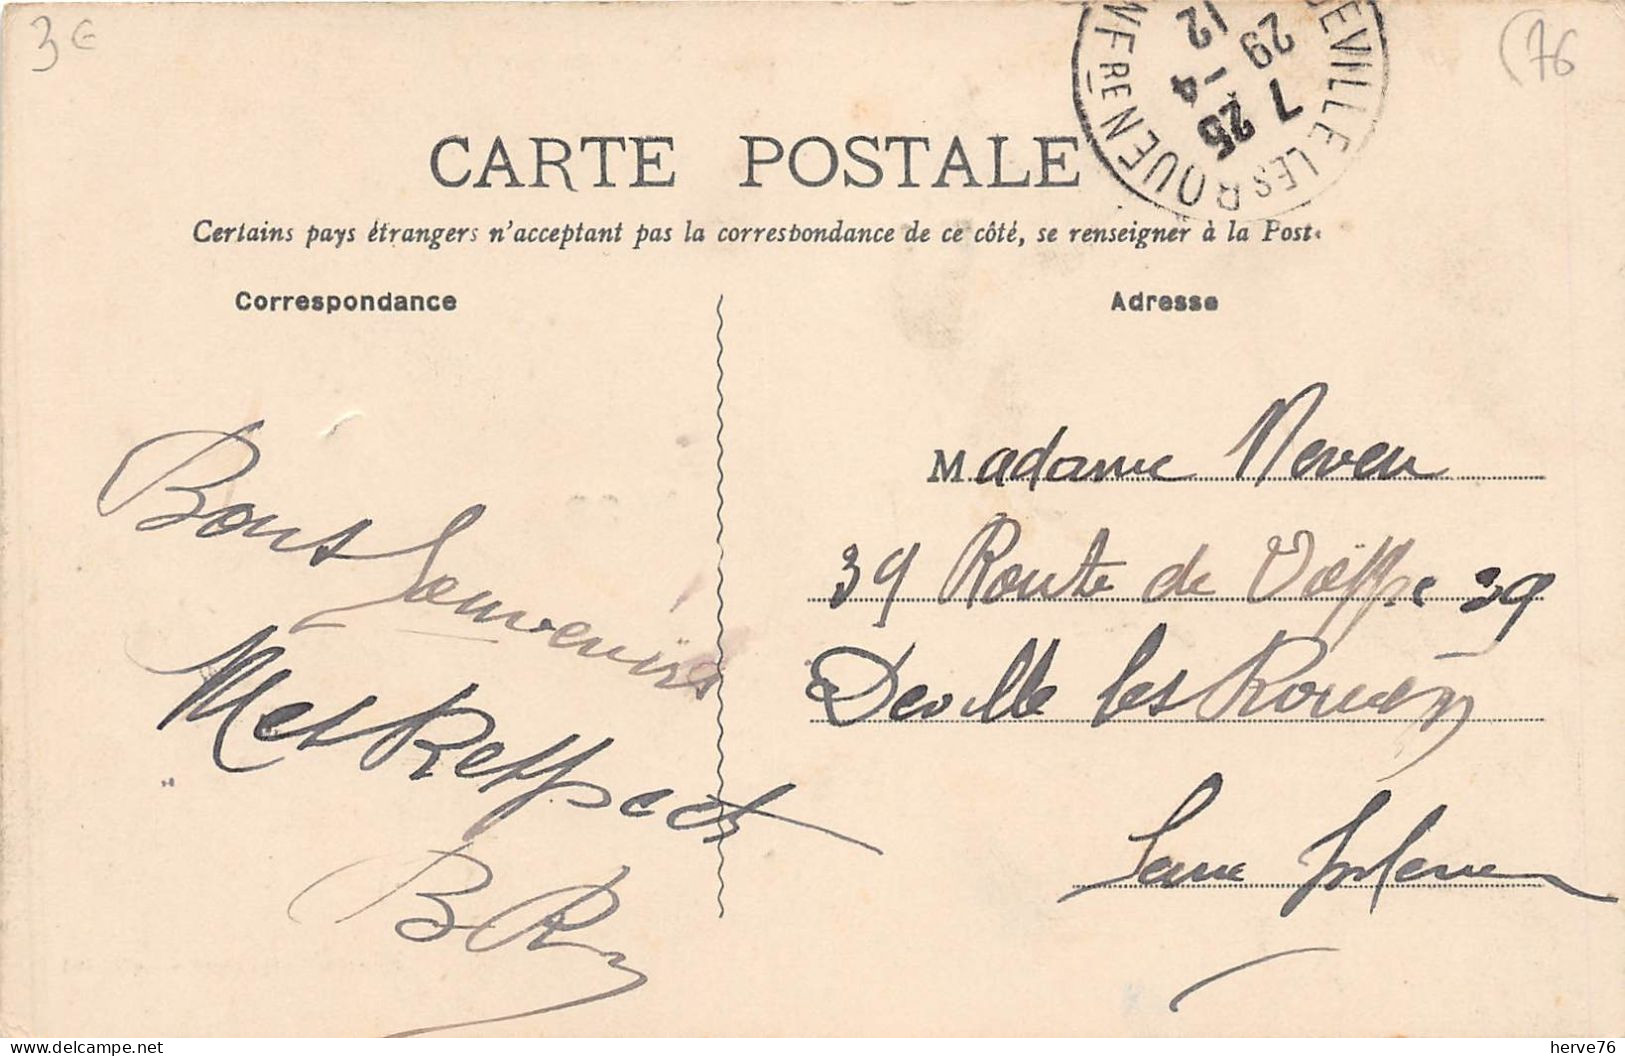 3€
(76
DEVILLE LES ROUEN INFRE N
7 25
29 -4
12
CARTE POSTALE
Certains pays étrangers n'acceptent pas la correspondance de ce côté, se renseigner à la Poste
Correspondance
Adresse
Bons
Souvenirs
Mes Respects
B R
Madame Neveu
39 Route de Dieppe 39
Deville les Rouen
Seine Inferieure
herve76